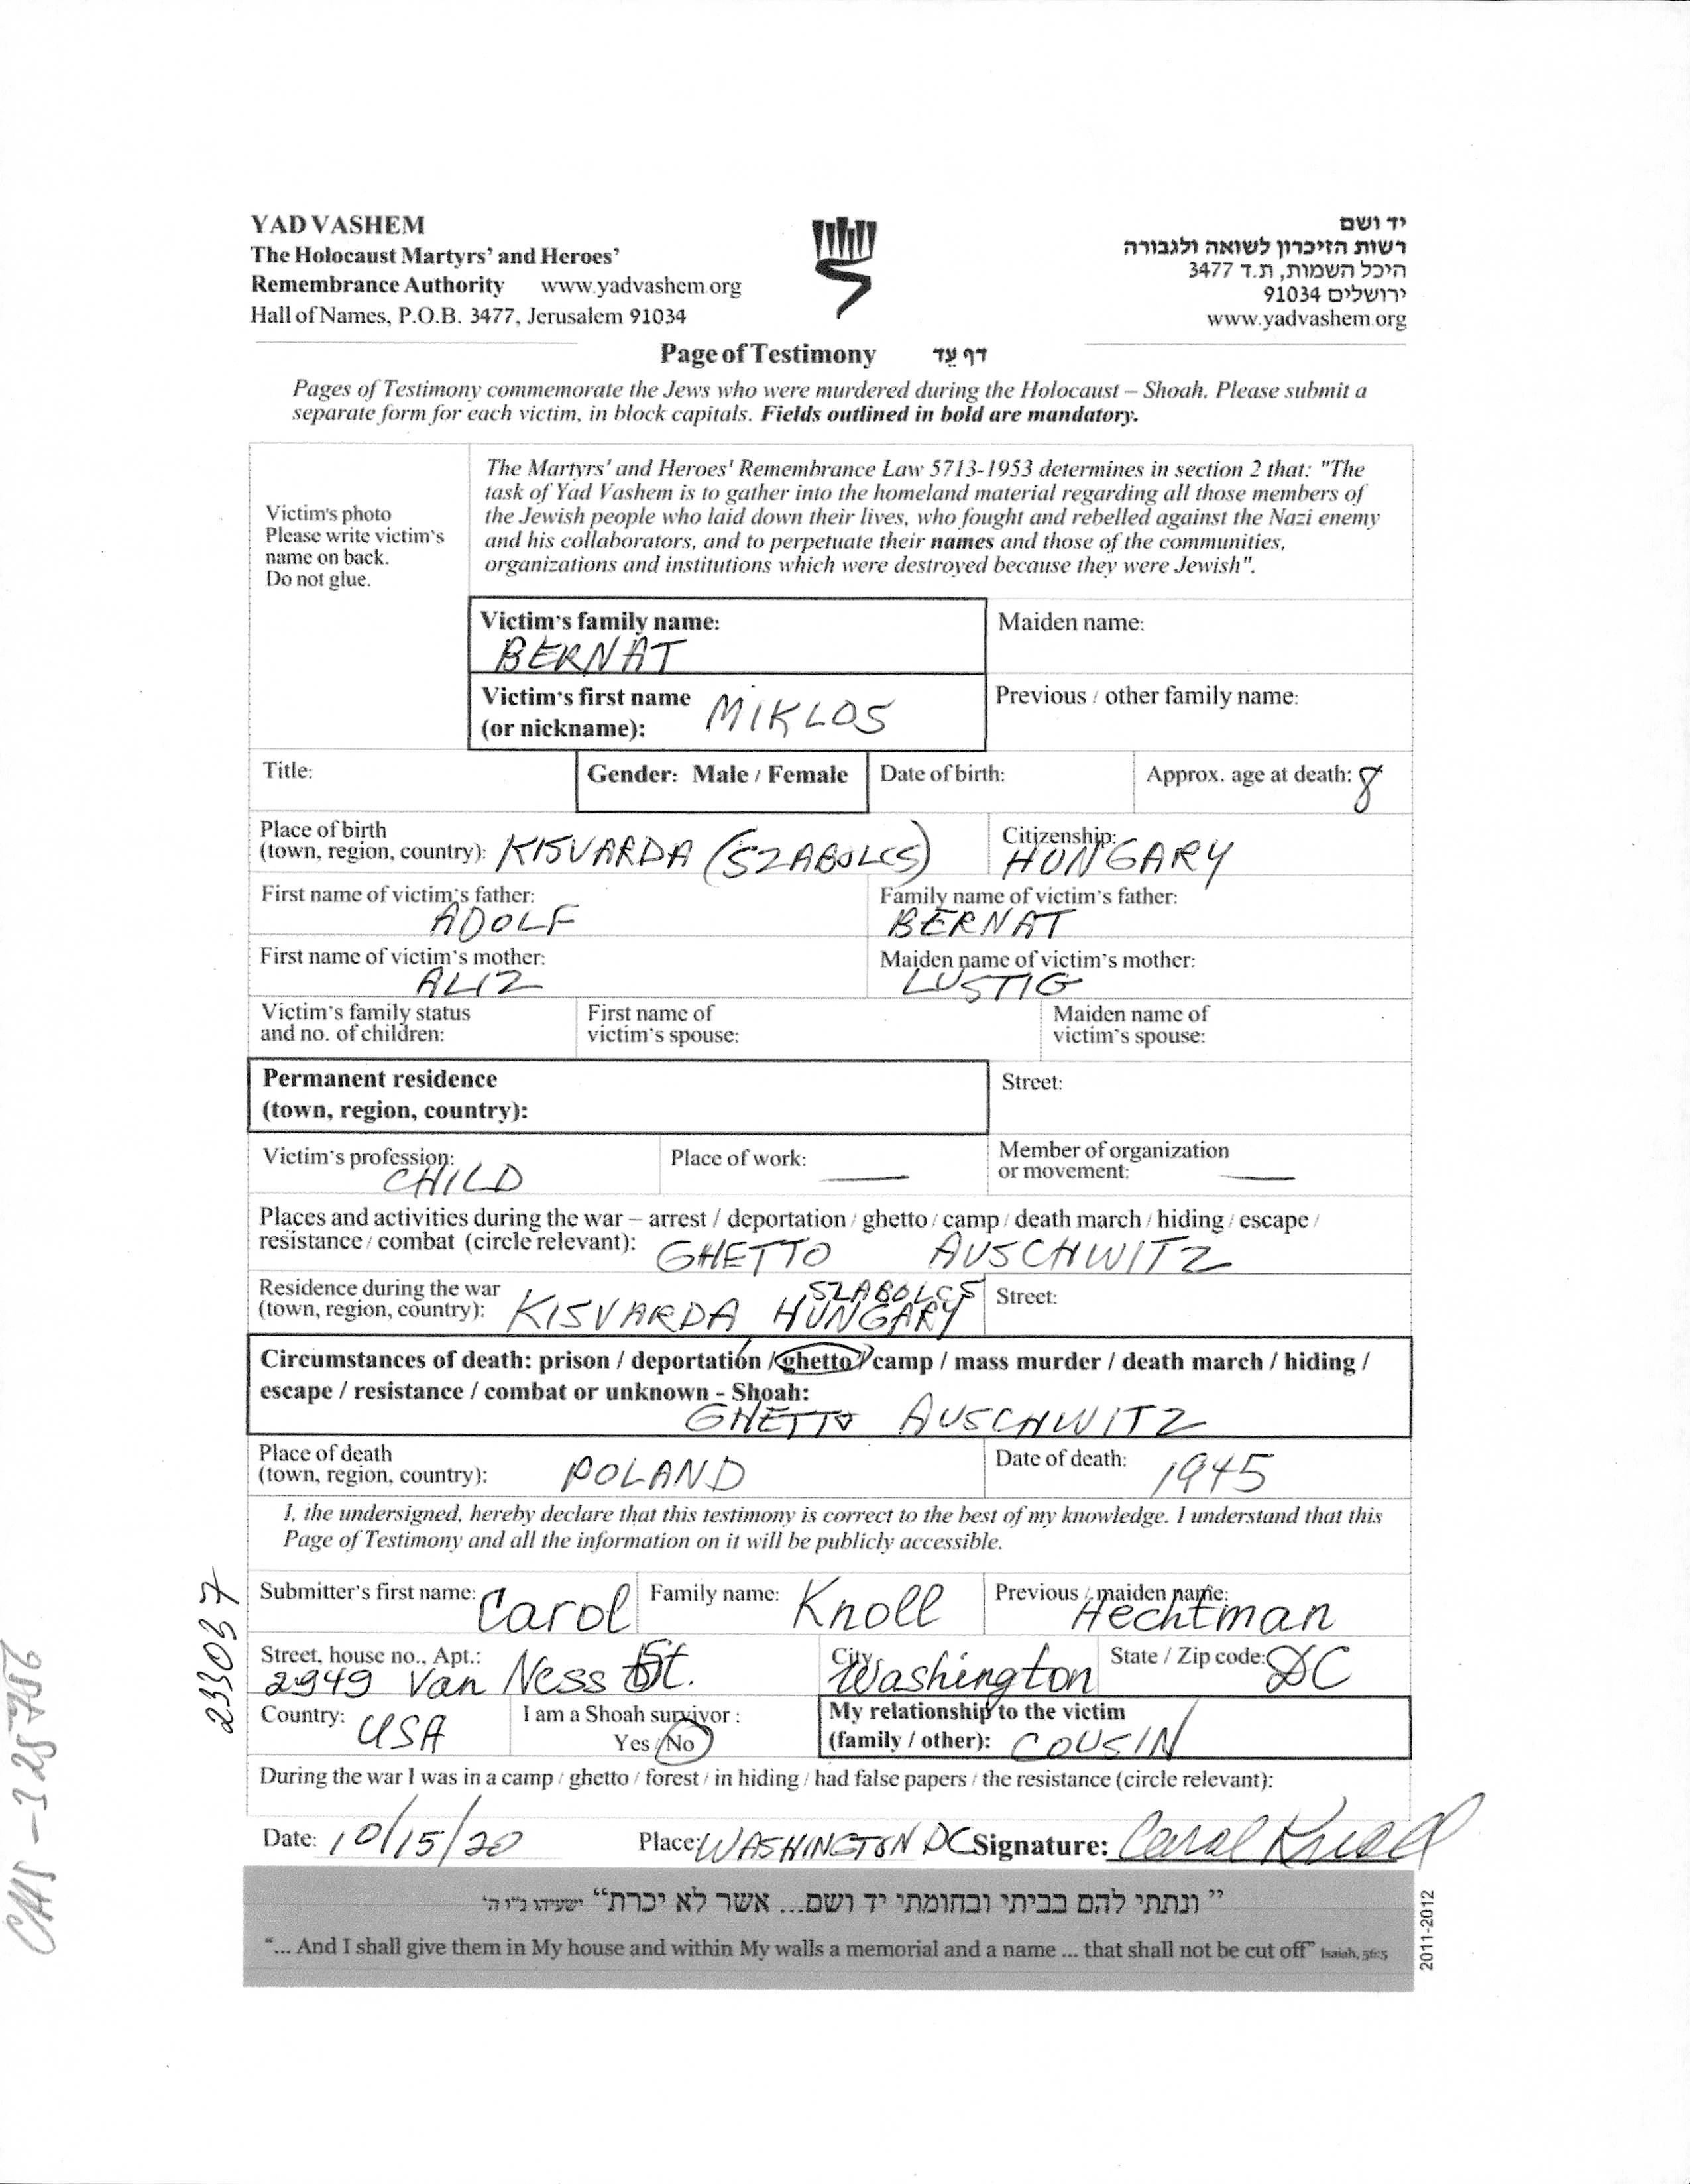 YAD VASHEM
The Holocaust Martyrs' and Heroes'
Remembrance Authority www.yadvashem.org
Hall of Names, P.O.B. 3477, Jerusalem 91034
יד ושם
רשות הזיכרון לשואה ולגבורה
היכל השמות, ת.ד 3477
ירושלים 91034
www.yadvashem.org
Page of Testimony דף עֵד
Pages of Testimony commemorate the Jews who were murdered during the Holocaust – Shoah. Please submit a
separate form for each victim, in block capitals. Fields outlined in bold are mandatory.
Victim's photo
Please write victim's
name on back.
Do not glue.
The Martyrs' and Heroes' Remembrance Law 5713-1953 determines in section 2 that: "The
task of Yad Vashem is to gather into the homeland material regarding all those members of
the Jewish people who laid down their lives, who fought and rebelled against the Nazi enemy
and his collaborators, and to perpetuate their names and those of the communities,
organizations and institutions which were destroyed because they were Jewish".
Victim's family name: Maiden name:
BERNAT
Victim's first name MIKLOS Previous / other family name:
(or nickname):
Title: Gender: Male / Female Date of birth: Approx. age at death: 8
Place of birth
(town, region, country): KISVARDA (SZABOLCS) Citizenship: HUNGARY
First name of victim's father: Family name of victim's father:
ADOLF BERNAT
First name of victim's mother: Maiden name of victim's mother:
ALIZ LUSTIG
Victim's family status First name of Maiden name of
and no. of children: victim's spouse: victim's spouse:
Permanent residence Street:
(town, region, country):
Victim's profession: CHILD Place of work: — Member of organization
or movement: —
Places and activities during the war – arrest / deportation / ghetto / camp / death march / hiding / escape /
resistance / combat (circle relevant): GHETTO AUSCHWITZ
Residence during the war SZABOLCS Street:
(town, region, country): KISVARDA HUNGARY
Circumstances of death: prison / deportation / ghetto / camp / mass murder / death march / hiding /
escape / resistance / combat or unknown - Shoah:
GHETTO AUSCHWITZ
Place of death
(town, region, country): POLAND Date of death: 1945
I, the undersigned, hereby declare that this testimony is correct to the best of my knowledge. I understand that this
Page of Testimony and all the information on it will be publicly accessible.
Submitter's first name: Carol Family name: Knoll Previous / maiden name: Hechtman
Street, house no., Apt.: City: State / Zip code: DC
2949 Van Ness St. Washington
Country: USA I am a Shoah survivor : My relationship to the victim
Yes / No (family / other): COUSIN
During the war I was in a camp / ghetto / forest / in hiding / had false papers / the resistance (circle relevant):
Date: 10/15/20 Place: WASHINGTON DC Signature: Carol Knoll
”ונתתי להם בביתי ובחומתי יד ושם... אשר לא יכרת“ ישעיהו נ"ו ה'
“... And I shall give them in My house and within My walls a memorial and a name ... that shall not be cut off” Isaiah, 56:5
2011-2012
233037